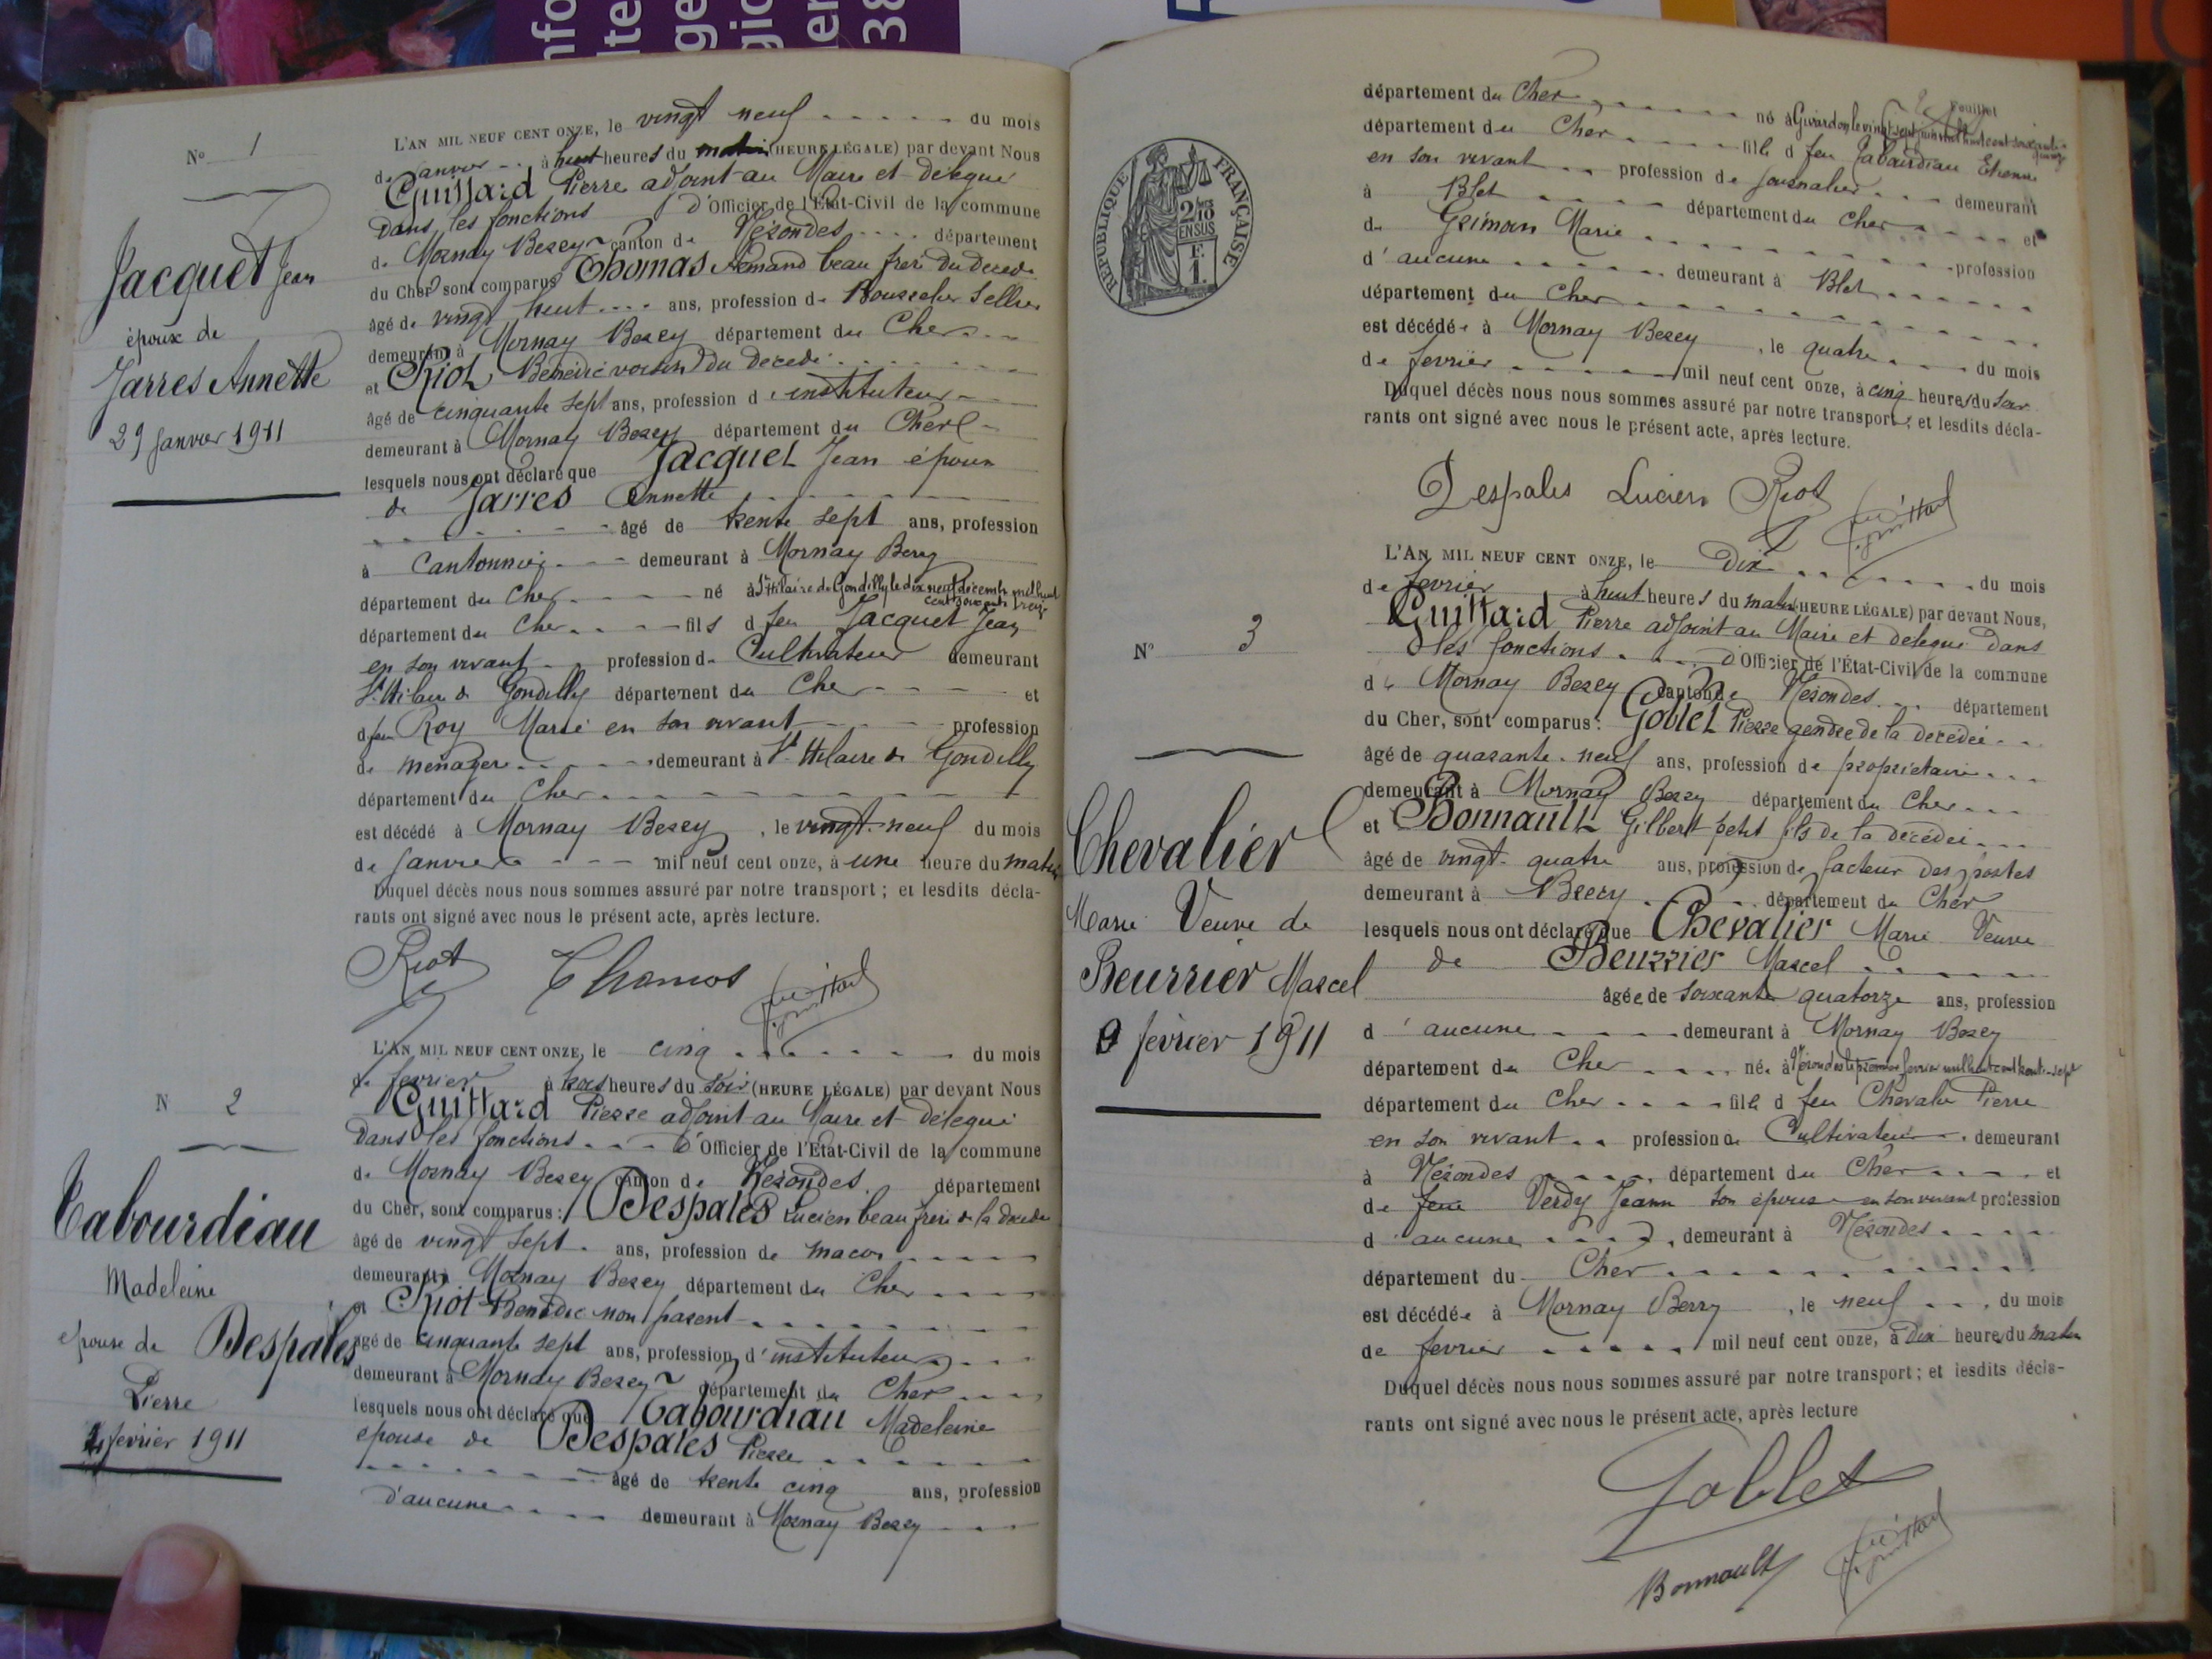 N° 1
Jacquet Jean
époux de
Jarres Annette
29 janvier 1911
L'AN MIL NEUF CENT ONZE, le vingt neuf du mois
de Janvier à huit heures du matin (HEURE LÉGALE) par devant Nous
Guittard Pierre adjoint au Maire et délégué
dans les fonctions d'Officier de l'État-Civil de la commune
de Mornay Berry canton de Nérondes département
du Cher sont comparus Thomas Armand beau frère du décédé
âgé de vingt huit ans, profession de Bourrelier Sellier
demeurant à Mornay Berry département du Cher
et Riot Bénédic voisin du décédé
âgé de cinquante sept ans, profession d'instituteur
demeurant à Mornay Berry département du Cher
lesquels nous ont déclaré que Jacquet Jean époux
de Jarres Annette
âgé de trente sept ans, profession
à Cantonnier demeurant à Mornay Berry
département du Cher né à St Hilaire de Gondilly le dix neuf décembre mil huit
cent soixante treize
département du Cher fils d feu Jacquet Jean
en son vivant profession de Cultivateur demeurant
St Hilaire de Gondilly département du Cher et
d feu Roy Marie en son vivant profession
de ménagère demeurant à St Hilaire de Gondilly
département du Cher
est décédé à Mornay Berry, le vingt-neuf du mois
de Janvier mil neuf cent onze, à une heure du matin
Duquel décès nous nous sommes assuré par notre transport ; et lesdits décla-
rants ont signé avec nous le présent acte, après lecture.
Riot Thomas Guittard
N 2
Tabourdiau
Madeleine
épouse de Despalès
Pierre
4 février 1911
L'AN MIL NEUF CENT ONZE, le cinq du mois
de février à trois heures du soir (HEURE LÉGALE) par devant Nous
Guittard Pierre adjoint au Maire et délégué
dans les fonctions d'Officier de l'État-Civil de la commune
de Mornay Berry canton de Nérondes département
du Cher, sont comparus : Despalès Lucien beau frère de la décédée
âgé de vingt sept ans, profession de maçon
demeurant à Mornay Berry département du Cher
et Riot Bénédic non parent
âgé de cinquante sept ans, profession d'instituteur
demeurant à Mornay Berry département du Cher
lesquels nous ont déclaré que Tabourdiau Madeleine
épouse de Despalès Pierre
âgé de trente cinq ans, profession
d'aucune demeurant à Mornay Berry
Feuillet
RÉPUBLIQUE FRANÇAISE
2/10 EN SUS
F. 1.
département du Cher né à Givardon le vingt sept juin mil huit cent soixante
quinze
département du Cher fille d feu Tabourdiau Etienne
en son vivant profession de journalier demeurant
à Blet département du Cher et
de Grimoin Marie profession
d'aucune demeurant à Blet
département du Cher
est décédée à Mornay Berry, le quatre du mois
de février mil neuf cent onze, à cinq heures du soir
Duquel décès nous nous sommes assuré par notre transport ; et lesdits décla-
rants ont signé avec nous le présent acte, après lecture.
Despalès Lucien Riot Guittard
N° 3
Chevalier
Marie Veuve de
Beurrier Marcel
9 février 1911
L'AN MIL NEUF CENT ONZE, le Dix du mois
de février à huit heures du matin (HEURE LÉGALE) par devant Nous,
Guittard Pierre adjoint au Maire et délégué dans
les fonctions d'Officier de l'État-Civil de la commune
de Mornay Berry canton de Nérondes département
du Cher, sont comparus : Goblet Pierre gendre de la décédée
âgé de quarante-neuf ans, profession de propriétaire
demeurant à Mornay Berry département du Cher
et Bonnault Gilbert petit fils de la décédée
âgé de vingt-quatre ans, profession de facteur des postes
demeurant à Brécy département du Cher
lesquels nous ont déclaré que Chevalier Marie Veuve
de Beurrier Marcel
âgée de soixante quatorze ans, profession
d'aucune demeurant à Mornay Berry
département du Cher née à Nérondes le premier février mil huit cent trente-sept
département du Cher fille d feu Chevalier Pierre
en son vivant profession de Cultivateur demeurant
à Nérondes département du Cher et
de feue Verdy Jeanne son épouse en son vivant profession
d'aucune demeurant à Nérondes
département du Cher
est décédée à Mornay Berry, le neuf du mois
de février mil neuf cent onze, à Dix heures du matin
Duquel décès nous nous sommes assuré par notre transport ; et lesdits décla-
rants ont signé avec nous le présent acte, après lecture
Goblet
Bonnault Guittard